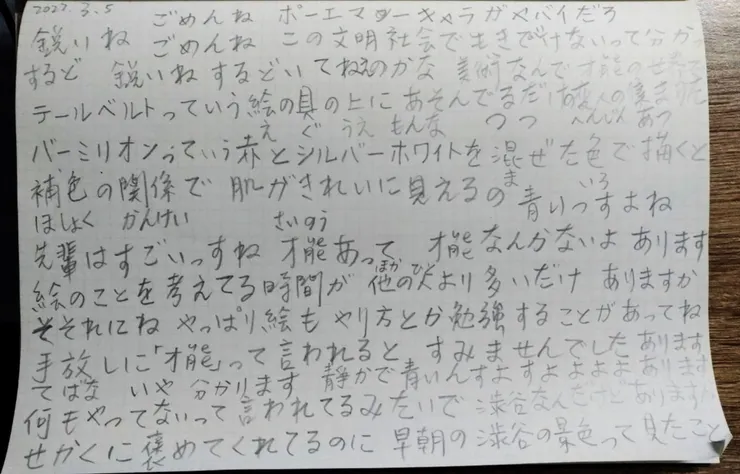 2022.3.5 ごめんね ポーエマーキャラがヤバイだろ
鋭いね ごめんね この文明社会で生きて行けないって分か
するど 鋭いねするどいてねえのかな 美術なんで才能の世界で
テールベルトっていう絵の具の上に あそんでるだけの変人の僕
え ぐ うえ もんな つつ へんじん あつ
バーミリオンっていう赤とシルバーホワイトを混ぜた色で描くと
補色の関係で 肌がきれいに見えるの 青いっすよね
ま いろ
ほしょく かんけい さいのう
先輩はすごいっすね 才能あって 才能なんかないよ あります
ほか ひと
絵のことを考えてる時間が 他の人より多いだけ ありますか
そそれにね やっぱり絵も やり方とか勉強することがあってね
手放しに「才能」って言われると すみませんでした あります
てばな いや 分かります 静かで青いんすよすよよよよ あります
何もやってないって言われてるみたいで 渋谷なんだけど あります
せかくに褒めてくれてるのに 早朝の渋谷の景色って見たこと